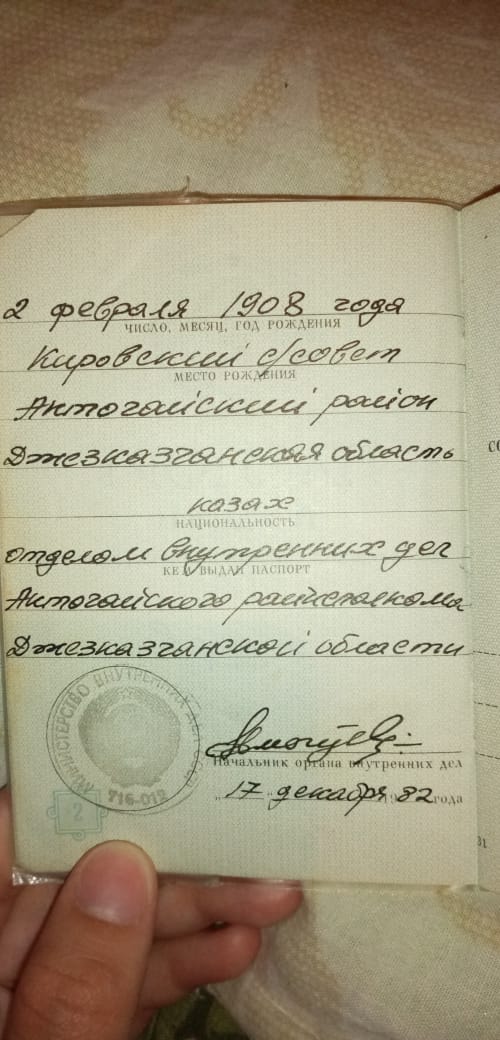 2 февраля 1908 года
ЧИСЛО, МЕСЯЦ, ГОД РОЖДЕНИЯ
Кировский с/совет
МЕСТО РОЖДЕНИЯ
Актогайский район
Джезказганская область
казах
НАЦИОНАЛЬНОСТЬ
отделом внутренних дел
КЕМ ВЫДАН ПАСПОРТ
Актогайского райисполкома
Джезказганской области
МИНИСТЕРСТВО ВНУТРЕННИХ ДЕЛ СССР
716-012
Начальник органа внутренних дел
"17" декабря 1982 года
2
СО
31